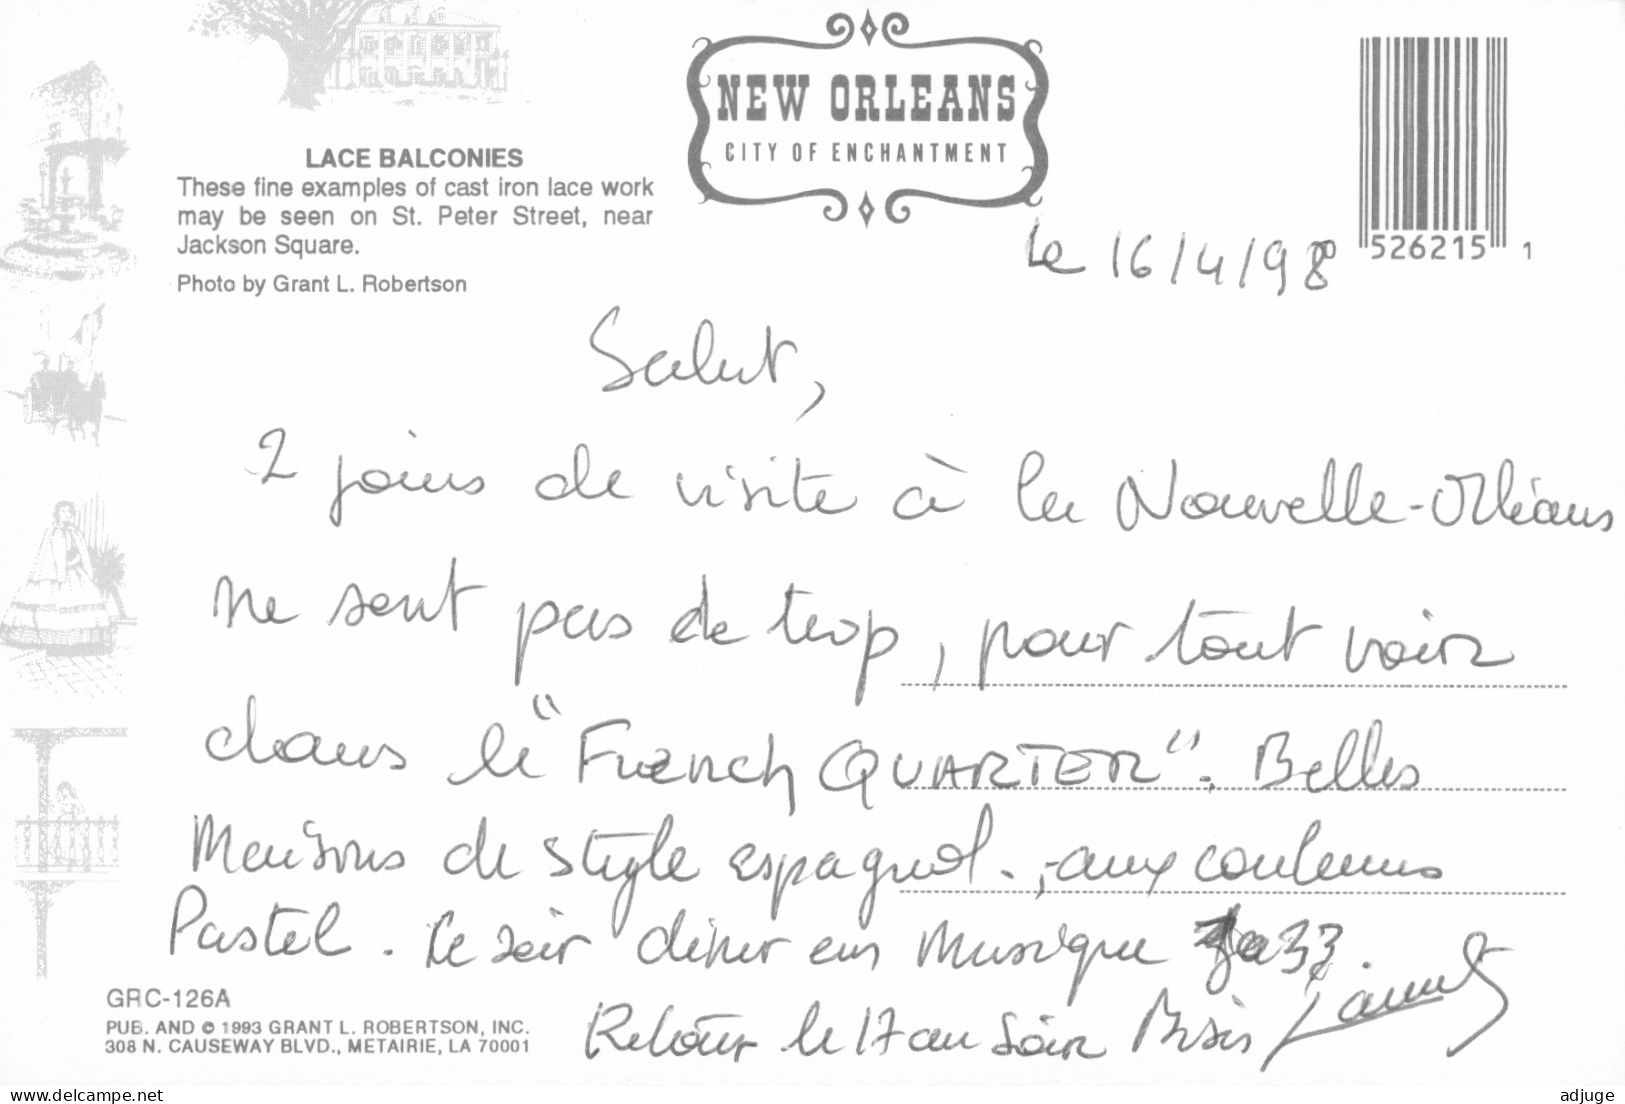 NEW ORLEANS
CITY OF ENCHANTMENT
LACE BALCONIES
These fine examples of cast iron lace work
may be seen on St. Peter Street, near
Jackson Square.
Photo by Grant L. Robertson
526215 1
le 16/4/98
Salut,
2 jours de visite à la Nouvelle-Orléans
ne sont pas de trop, pour tout voir
dans le "French QUARTER". Belles
Maisons de style espagnol. , aux couleurs
Pastel. Le soir dîner en musique Jazz.
Retour le 17 au soir Bisis
GRC-126A
PUB. AND © 1993 GRANT L. ROBERTSON, INC.
308 N. CAUSEWAY BLVD., METAIRIE, LA 70001
delcampe.net
adjuge